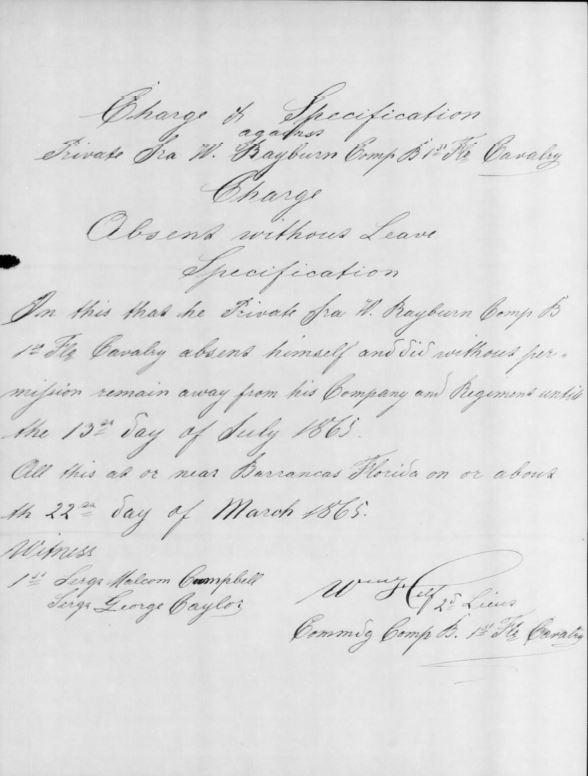 Charge & Specification
against
Private Ira W. Rayburn Comp B 1st Fla Cavalry
Charge
Absent without Leave
Specification
In this that he Private Ira W. Rayburn Comp B
1st Fla Cavalry absent himself and did without per-
mission remain away from his Company and Regiment until
the 13th day of July 1865.
All this at or near Barrancas Florida on or about
th 22nd day of March 1865.
Witness
1st Sergt Malcom Campbell
Sergt George Taylor
2d Lieut
Commdg Comp B. 1st Fla Cavalry